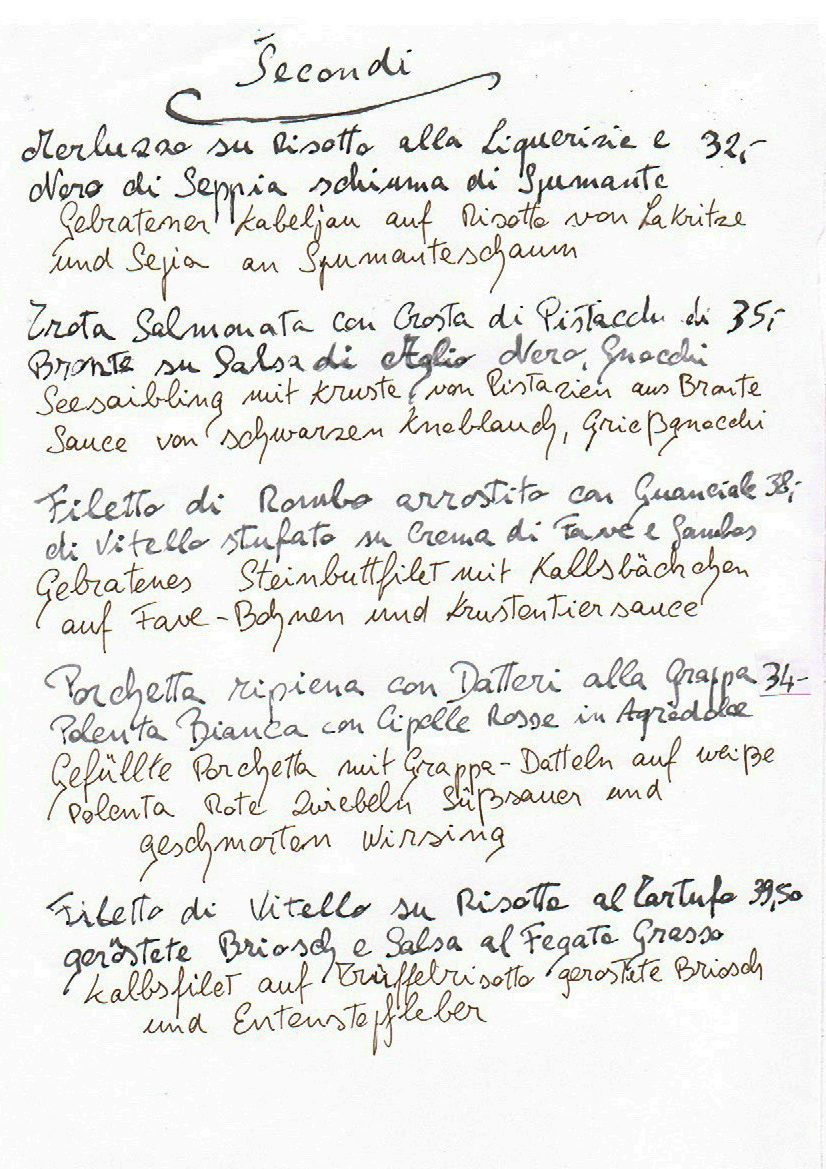 Secondi
Merluzzo su Risotto alla Liquerizie e 32,-
Nero di Seppia schiuma di Spumante
Gebratener Kabeljau auf Risotto von Lakritze
und Sepia an Spumanteschaum
Trota Salmonata con Crosta di Pistacchi di 35,-
Bronte su Salsa di Aglio Nero, Gnocchi
Seesaibling mit Kruste von Pistazien aus Bronte
Sauce von schwarzen Knoblauch, Grießgnocchi
Filetto di Rombo arrostito con Guanciale 38,-
di Vitello stufato su Crema di Fave e Gambas
Gebratenes Steinbuttfilet mit Kalbsbäckchen
auf Fave-Bohnen und Krustentiersauce
Porchetta ripiena con Datteri alla Grappa 34-
Polenta Bianca con Cipolle Rosse in Agrodolce
Gefüllte Porchetta mit Grappa-Datteln auf weiße
Polenta Rote Zwiebeln Süßsauer und
geschmorten Wirsing
Filetto di Vitello su Risotto al Tartufo 39,50
geröstete Briosch e Salsa al Fegato Grasso
Kalbsfilet auf Trüffelrisotto geröstete Briosch
und Entenstopfleber